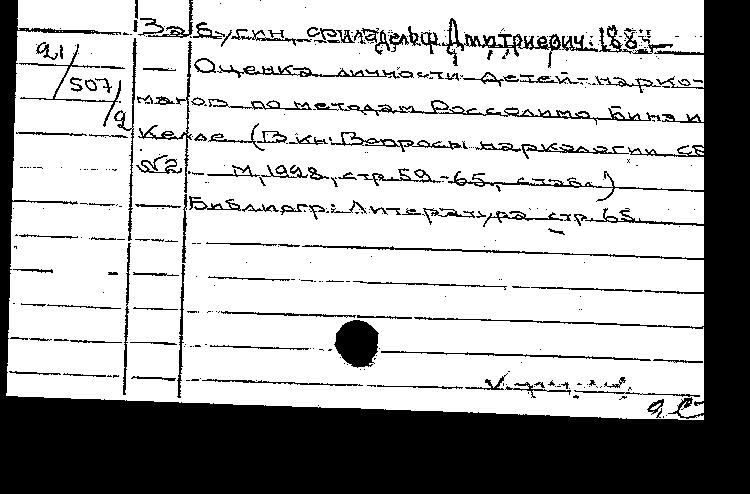 Забугин, Филадельф Дмитриевич. 1884-
91/507/9
Оценка личности детей-нарко-
манов по методам Россолимо, Бинэ и
Келле (В кн: Вопросы наркологии сб
№2 М, 1928, стр. 59-65, с табл.)
Библиогр: Литература стр. 65